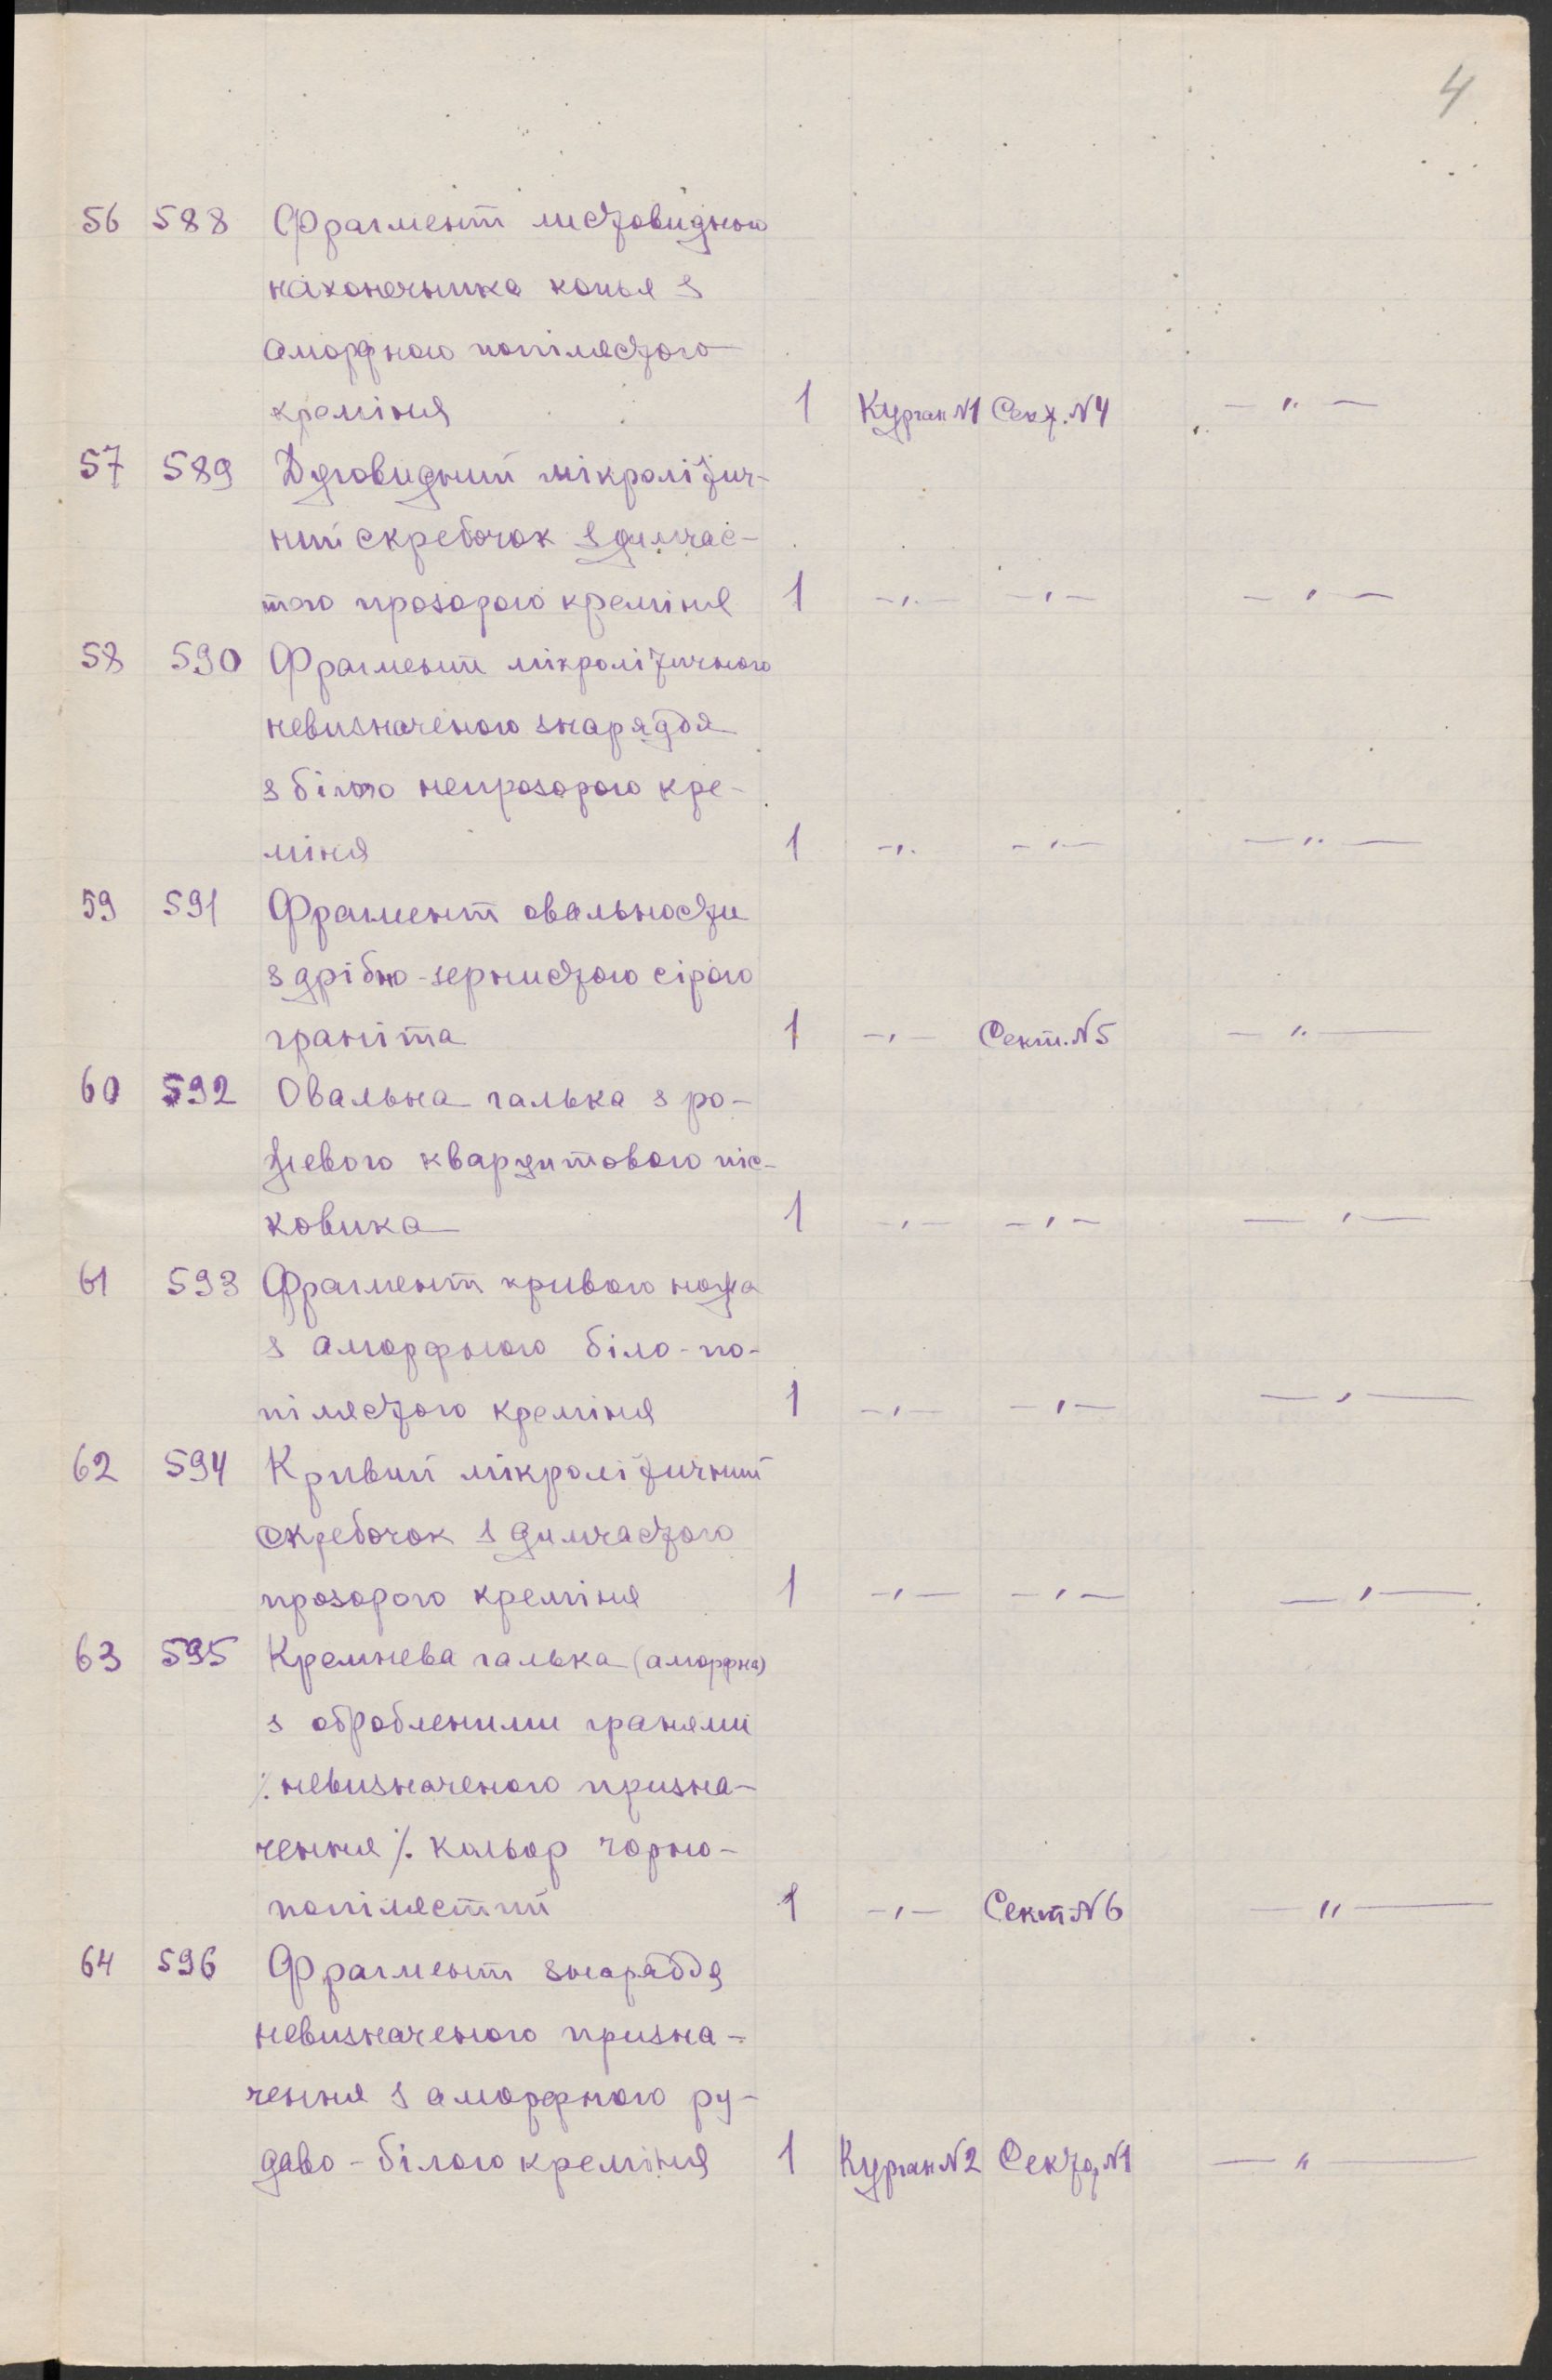 4
56 588 Фрагмент листовидного
наконечника копья з
аморфного попілястого
кремінія 1 Курган №1 Сект. №4 — „ —
57 589 Дуговидний мікролітич-
ний скребочок з димчас-
того прозорого кремінія 1 — „ — — „ — — „ —
58 590 Фрагмент мікролітичного
невизначеного знаряддя
з біло непрозорого кре-
мінія 1 — „ — „ — — „ —
59 591 Фрагмент овальности
з дрібно-зернистого сірого
граніта 1 — „ — Сект. №5 — „ —
60 592 Овальна галька з ро-
жевого кварцитового піс-
ковика 1 — „ — — „ — — „ —
61 593 Фрагмент кривого ножа
з аморфного біло-по-
пілястого кремінія 1 — „ — — „ — — „ —
62 594 Кривий мікролітичний
скребочок з димчастого
прозорого кремінія 1 — „ — — „ — — „ —
63 595 Кремнева галька (аморфна)
з обробленими гранями
٪ невизначеного призна-
чення ٪ кольор чорно-
попілястий 1 — „ — Сект №6 — „ —
64 596 Фрагмент знаряддя
невизначеного призна-
чення з аморфного ру-
даво-білого кремінія 1 Курган №2 Сект. №1 — „ —